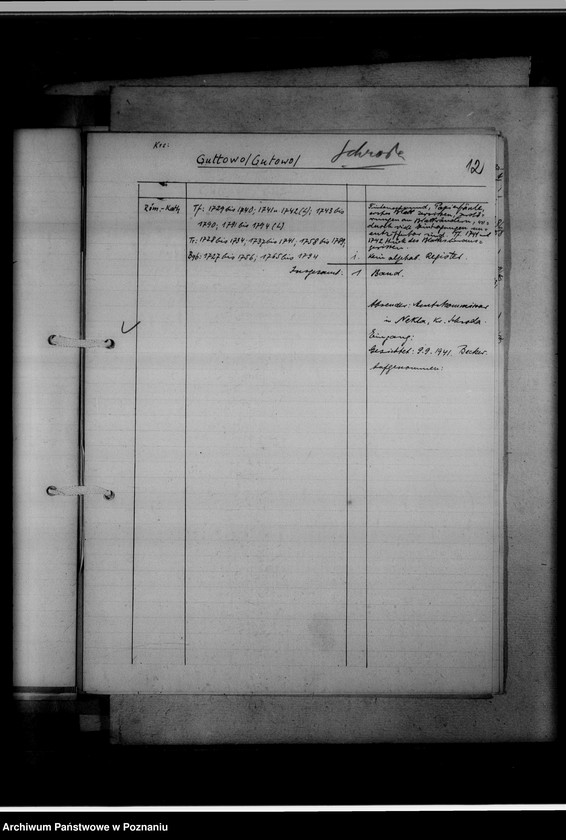 Krs:
Guttowo/Gutowo/ Schroda
12
Röm.-Kath.
Tf: 1729 bis 1740; 1741 u 1742 (L); 1743 bis
1790; 1791 bis 1794 (L)
Tr: 1728 bis 1734; 1737 bis 1741; 1758 bis 1789;
Bgb: 1727 bis 1756; 1765 bis 1794
1.
Insgesamt: 1 Band.
erstes Blatt zerrissen,
1742 Hälfte des Blattes
gerissen.
Kein alphab. Register.
Absender: Amtskommissar
in Nekla, Kr. Schroda.
Eingang:
Gesichtet: 9.9.1941. Becker.
Aufgenommen:
Archiwum Państwowe w Poznaniu